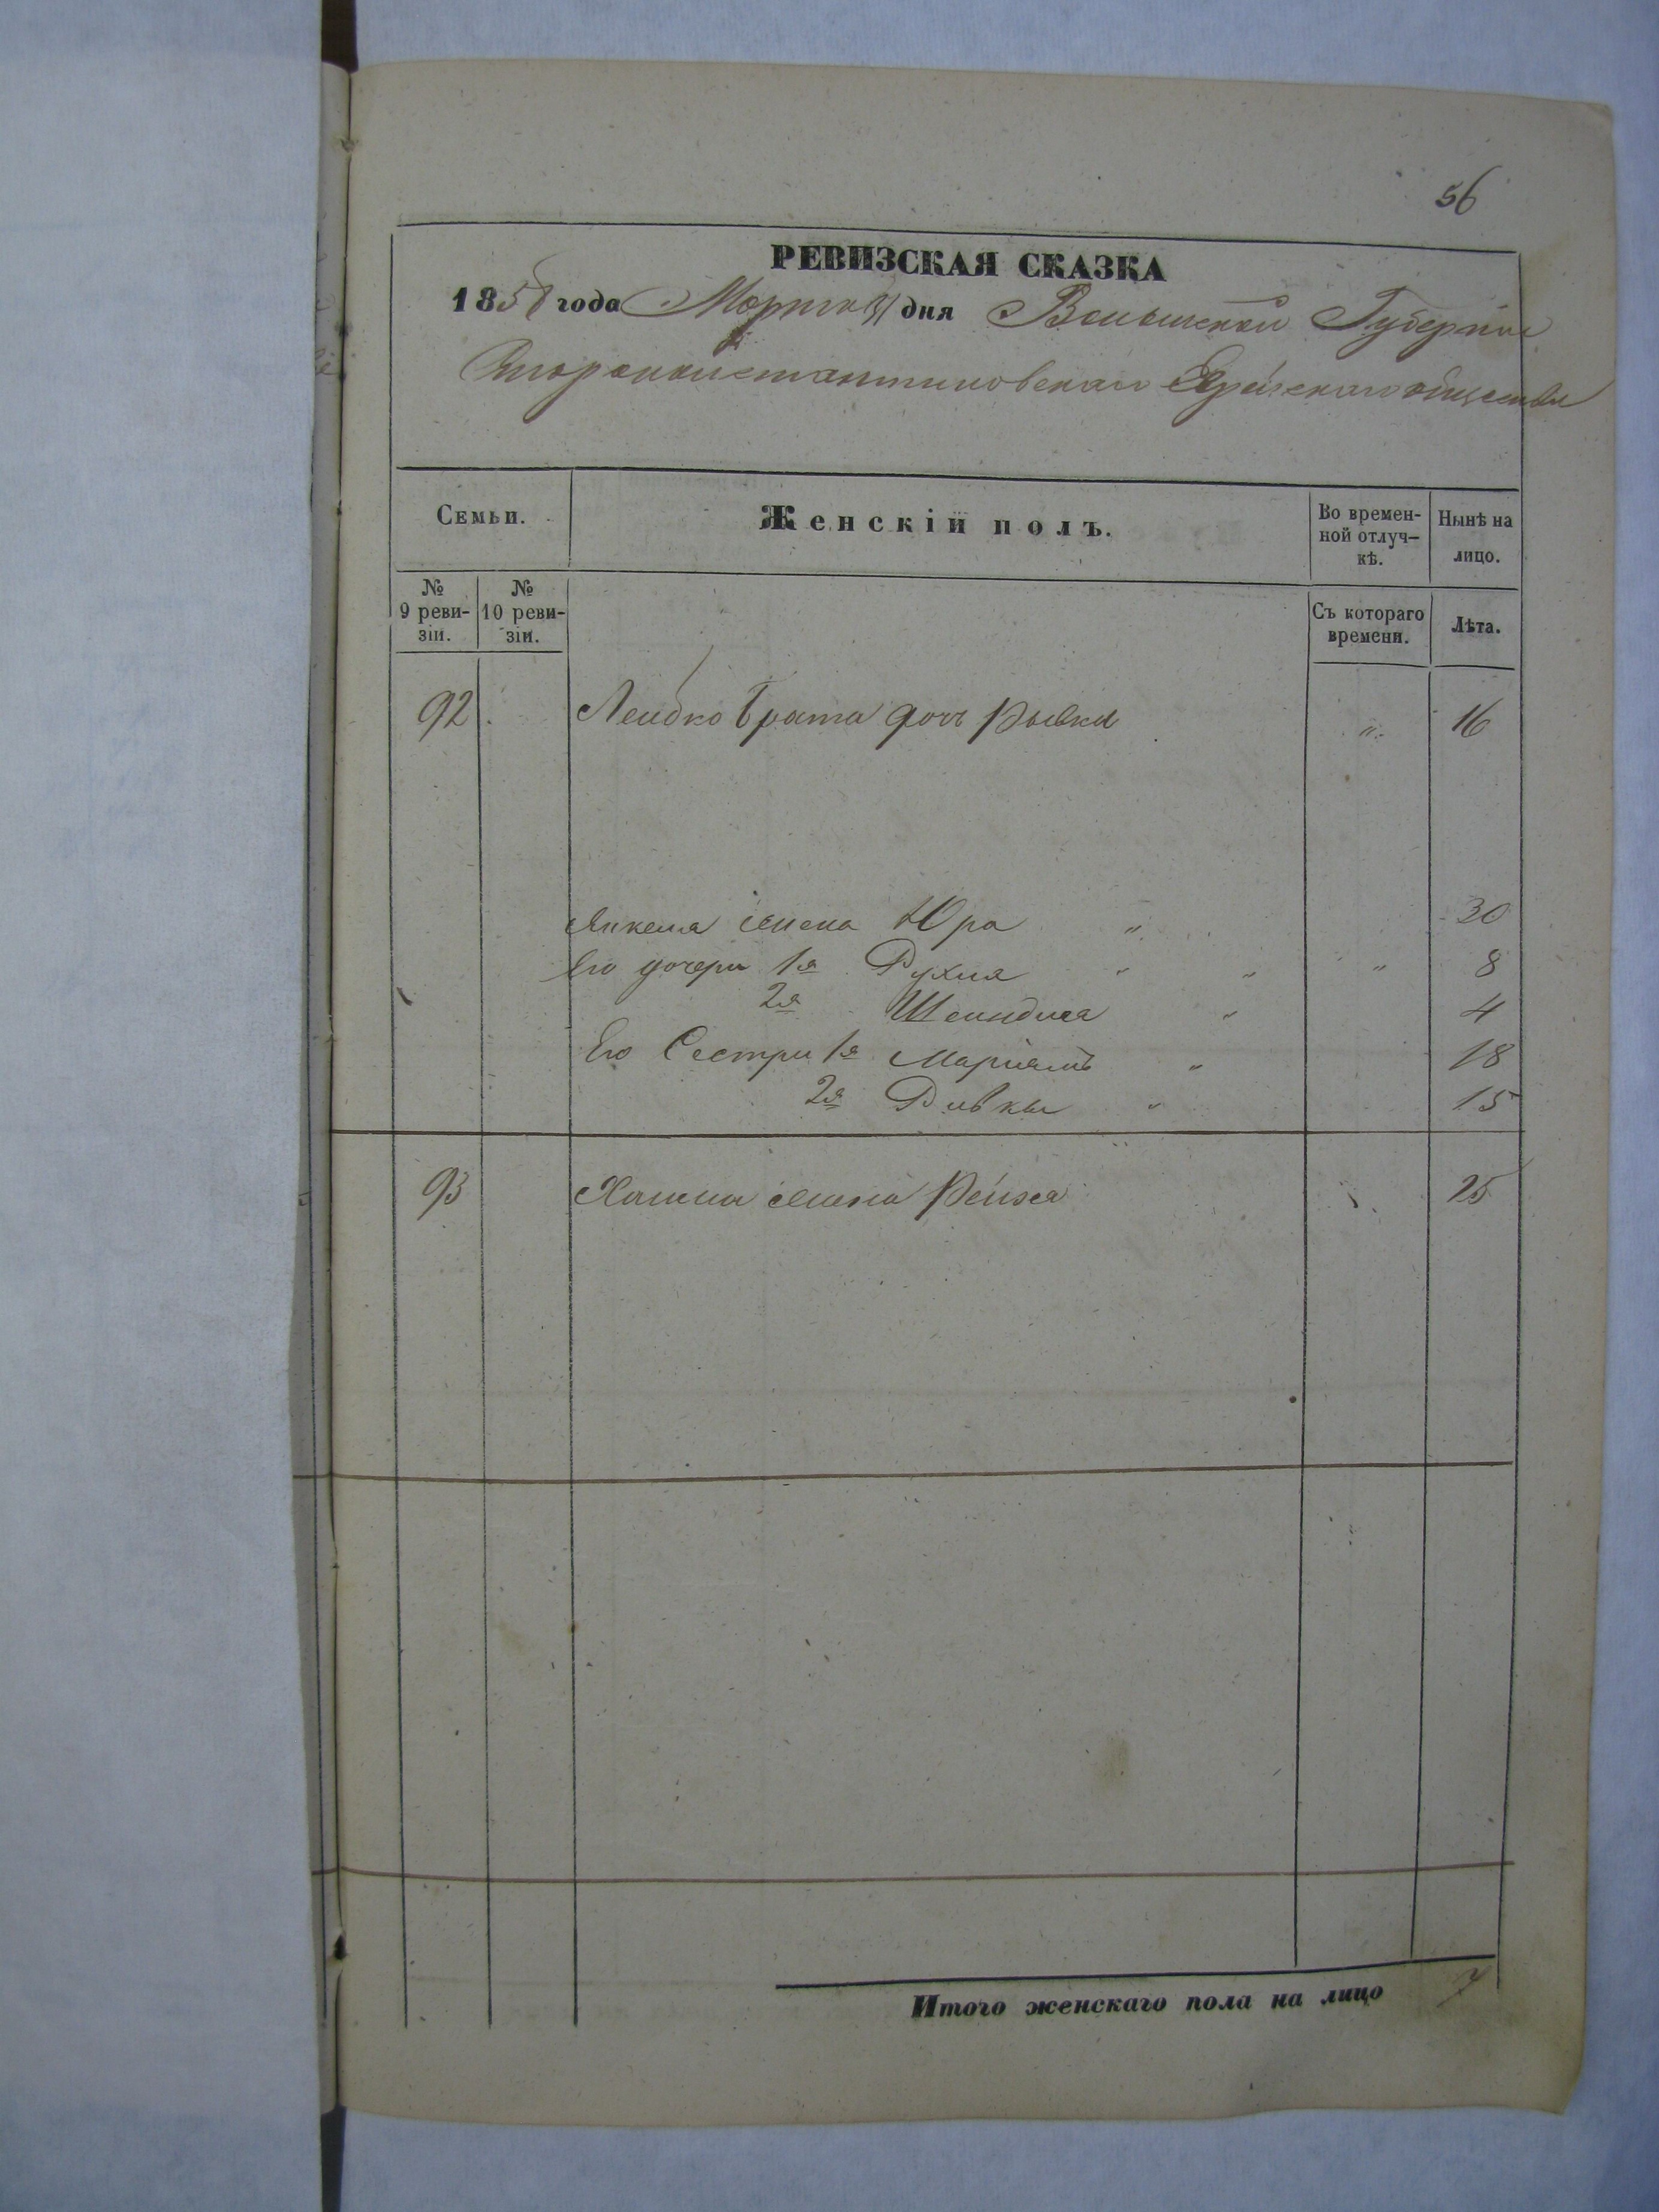 56
РЕВИЗСКАЯ СКАЗКА
1858 года Марта дня Волынской Губернии
Староконстантиновскаго Еврейскаго общества
Семьи. Женскій полъ. Во времен- Нынѣ на
ной отлуч- лицо.
кѣ.
№ №
9 реви- 10 реви- Съ котораго Лѣта.
зіи. зіи. времени.
92 Лейбко брата дочь Рывки " 16
Янкеля жена Юра " 30
Его дочери 1я Рухля " " " 8
2я Шеиндля " 4
Его Сестри 1я Маріямъ " 18
2я Ривки " 15
93 жена Рейзя 25
Итого женскаго пола на лицо 7